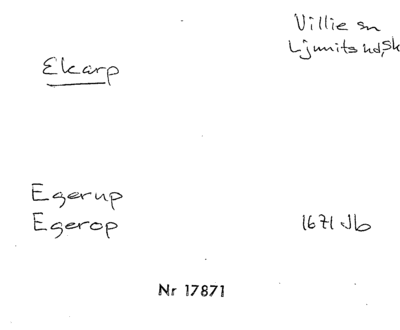 Villie sn
Ljunits hd, Sk
Ekarp
Egerup
Egerop 1671 Jb
Nr 17871